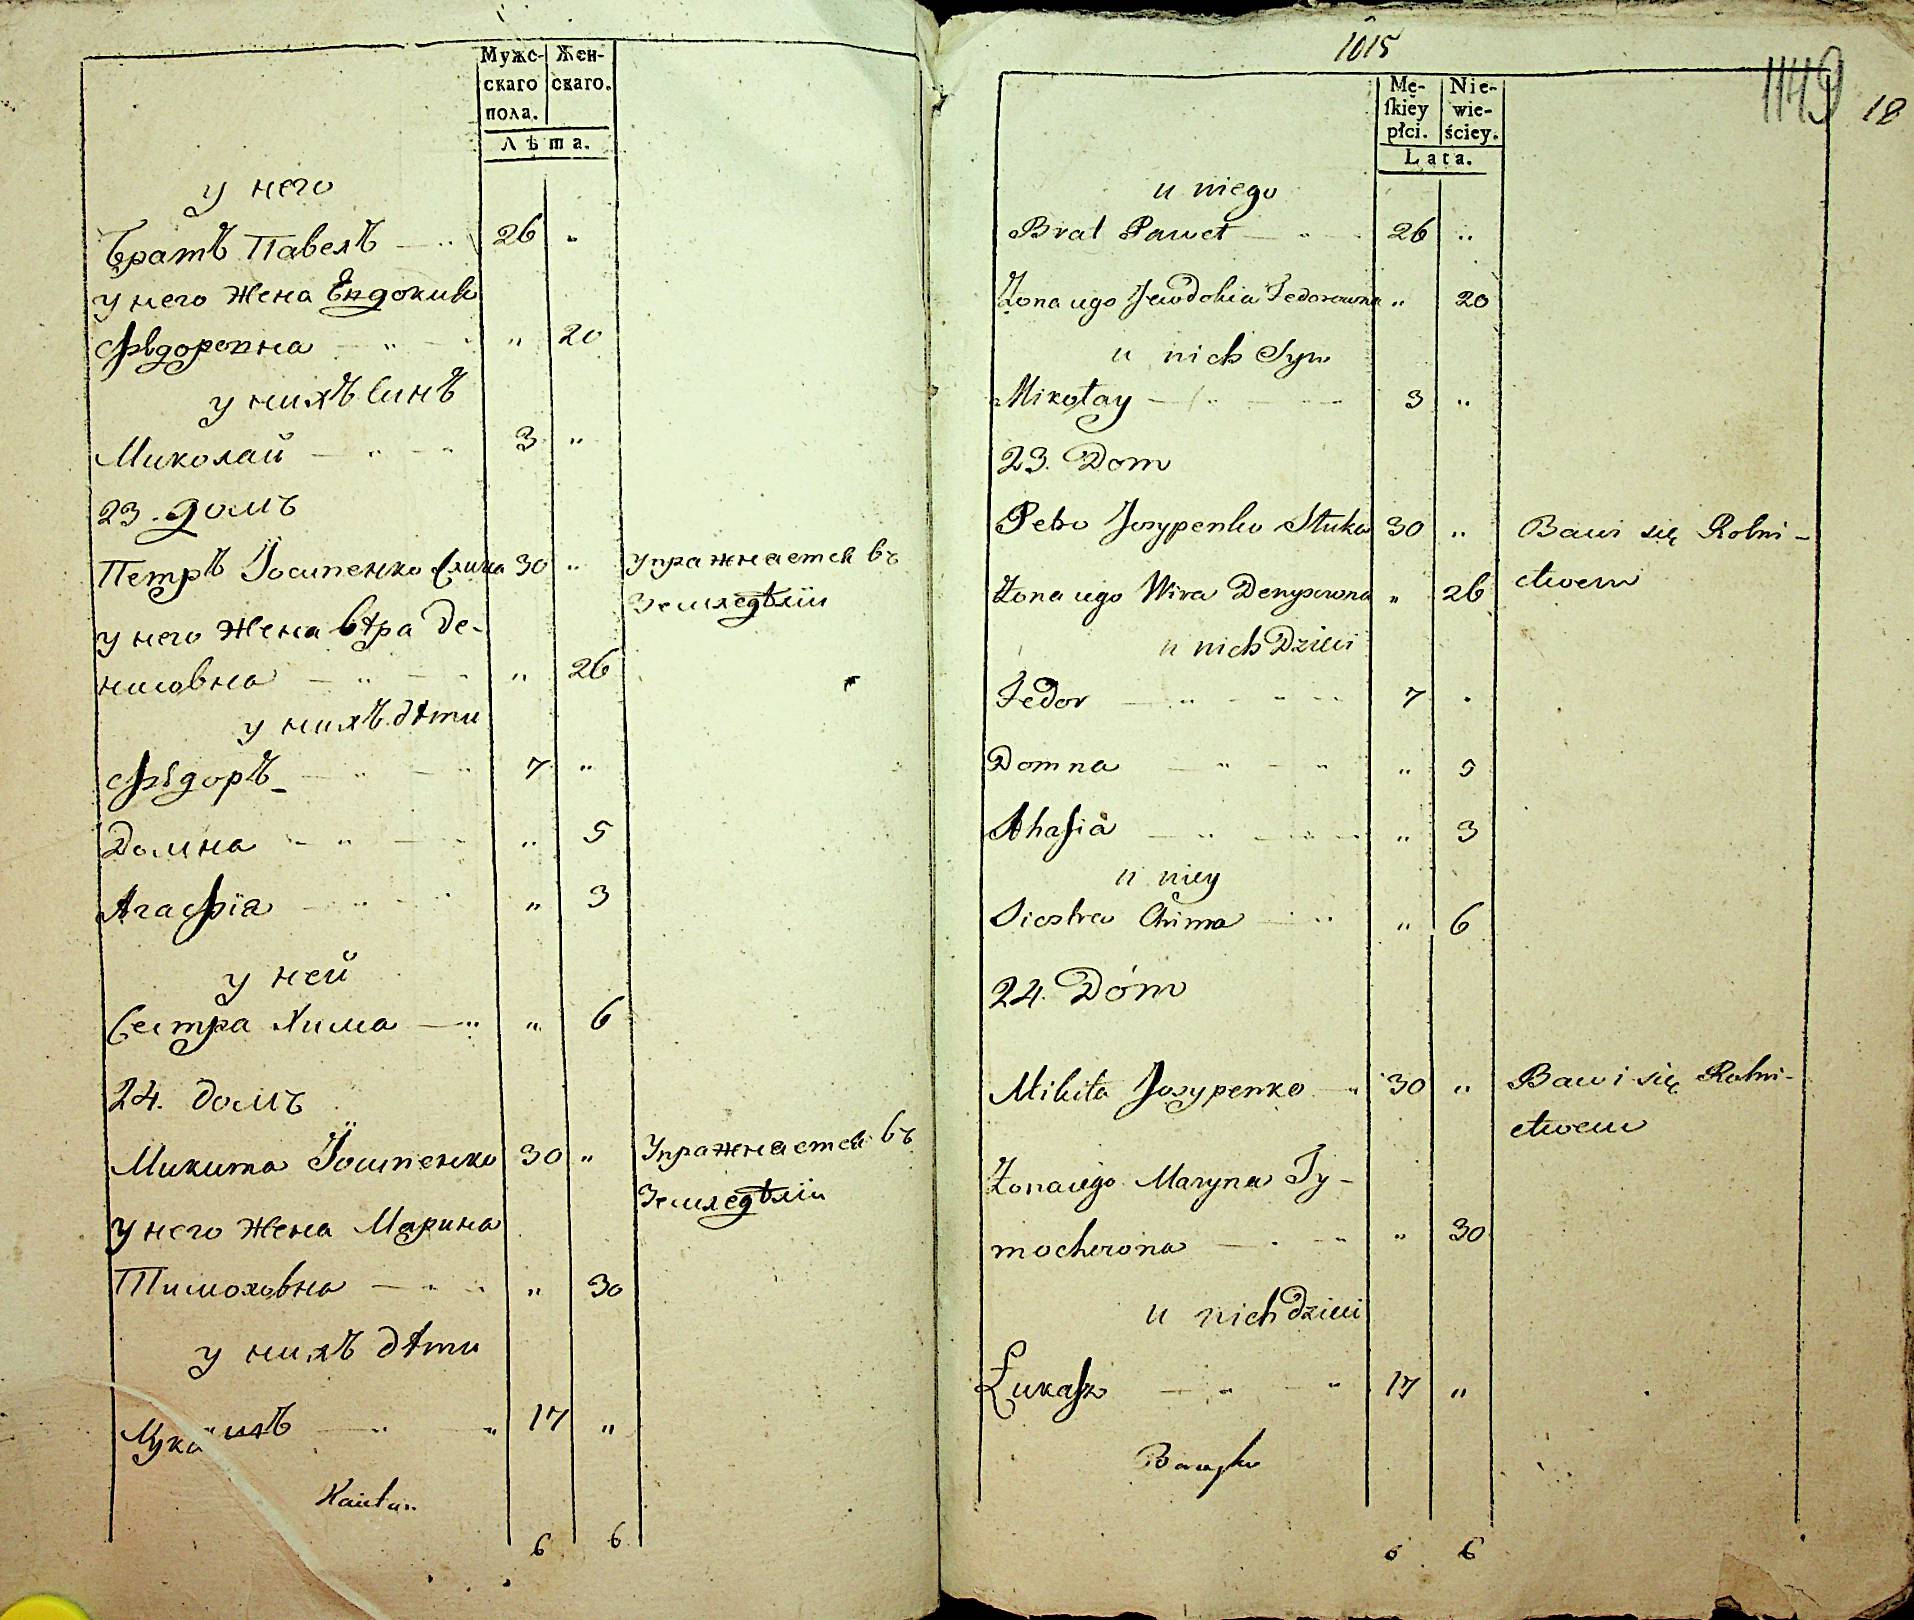 Мужс- Жен-
скаго скаго.
пола.
Лѣта.
у него
братъ Павелъ 26 "
у него жена Евдокия
Фѣдоровна " 20
у нихъ синъ
Миколай 3 "
23. домъ
Петръ Іосипенко 30 " Упражнается въ
Земледѣліи
у него жена Вѣра Де-
нисовна " 26
у нихъ дѣти
Фѣдоръ 7 "
Домна " 5
Агафія " 3
у ней
Сестра Хима " 6
24. домъ
Микита Іосипенко 30 " Упражнается въ
Земледѣліи
у него жена Марина
Тимоховна " 30
у нихъ дѣти
Лукашъ 17 "
6 6
1015
1149 18
Mę- Nie-
skiey wie-
płci. ściey.
Lata.
u niego
Brat Paweł 26 "
Żona iego Jewdokia Fedorowna " 20
u nich Syn
Mikołay 3 "
23. Dom
Petro Josypenko Stuka 30 " Bawi się Rolni-
ctwem
Żona iego Wira Denysowna " 26
u nich Dzieci
Fedor 7 "
Domna " 5
Ahafia " 3
u niey
Siostra Chima " 6
24. Dom
Mikita Josypenko 30 " Bawi się Rolni-
ctwem
Żona iego Maryna Ty-
mochowna " 30
u nich dzieci
Łukasz 17 "
6 6